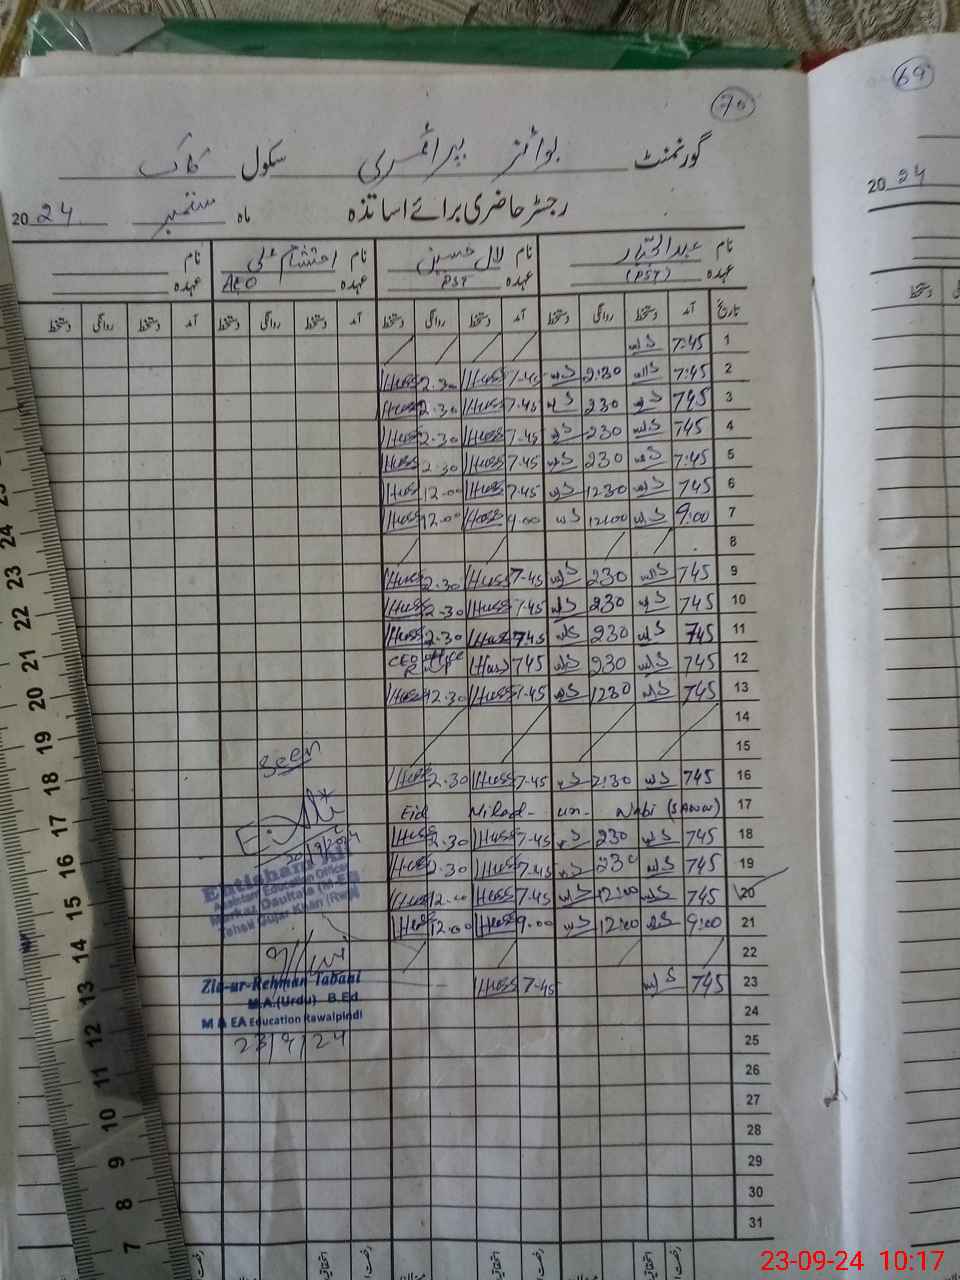 70
69
گورنمنٹ بوائز پرائمری سکول
رجسٹر حاضری برائے اساتذہ ماہ ستمبر 2024
2024
نام عبدالجبار نام لال حسین نام احتشام علی نام
عہدہ (PST) عہدہ PST عہدہ AEO عہدہ
تاریخ آمد دستخط روانگی دستخط آمد دستخط روانگی دستخط آمد دستخط روانگی دستخط آمد دستخط روانگی دستخط
1 7:45
2 7:45 2:30 7-45 Huss 2.30 Huss
3 745 230 7-45 Huss 2.30 Huss
4 745 230 7-45 Huss 2.30 Huss
5 7:45 230 7.45 Huss 2.30 Huss
6 745 1230 7-45 Huss 12.00 Huss
7 9:00 12:00 9.00 Huss 12.00 Huss
8
9 745 230 7-45 Huss 2.30 Huss
10 745 230 7.45 Huss 2-30 Huss
11 745 230 7.45 Huss 2.30 Huss
12 745 230 745 Huss CEO office
13 745 1230 7-45 Huss 12.30 Huss
14
15
16 745 2:30 7-45 Huss 2.30 Huss
17 Eid Milad-un-Nabi (SAWW)
18 745 230 7-45 Huss 2.30 Huss
19 745 230 7-45 Huss 2.30 Huss
20 745 12:00 7-45 Huss 12.00 Huss
21 9:00 12:00 9.00 Huss 12.00 Huss
22
23 745 7-45 Huss
24
25
26
27
28
29
30
31
Seen
20/9/2024
Ehtisham Ali
Assistant Education Officer
Markaz Daultala (M-EE)
Tehsil Gujar Khan (Rwp)
Zia-ur-Rehman Tabani
M.A.(Urdu) B.Ed
M & EA Education Rawalpindi
23/9/24
25
24
23
22
21
20
19
18
17
16
15
14
13
12
11
10
9
8
7
23-09-24 10:17